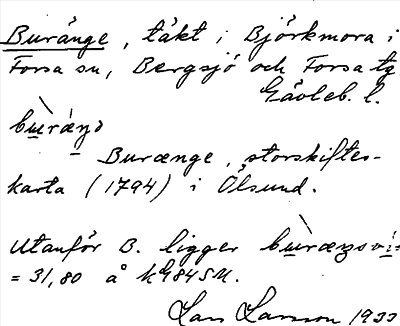 Buränge, täkt i Björkmora i
Forsa sn, Bergsjö och Forsa tg
Gävleb. l.
buræŋə
Burænge, storskiftes-
karta (1794) i Ölsund.
Utanför B. ligger buræŋsvi:
= 31,80 å hG84SM.
Lars Larsson 1933